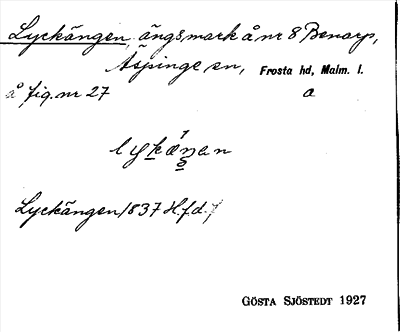 Lyckängen, ängsmark å nr 8 Benarp,
Äspinge sn, Frosta hd, Malm. l.
å fig. nr 27 a
lykǽŋan
Lyckängen 1837 Hfd.
GÖSTA SJÖSTEDT 1927